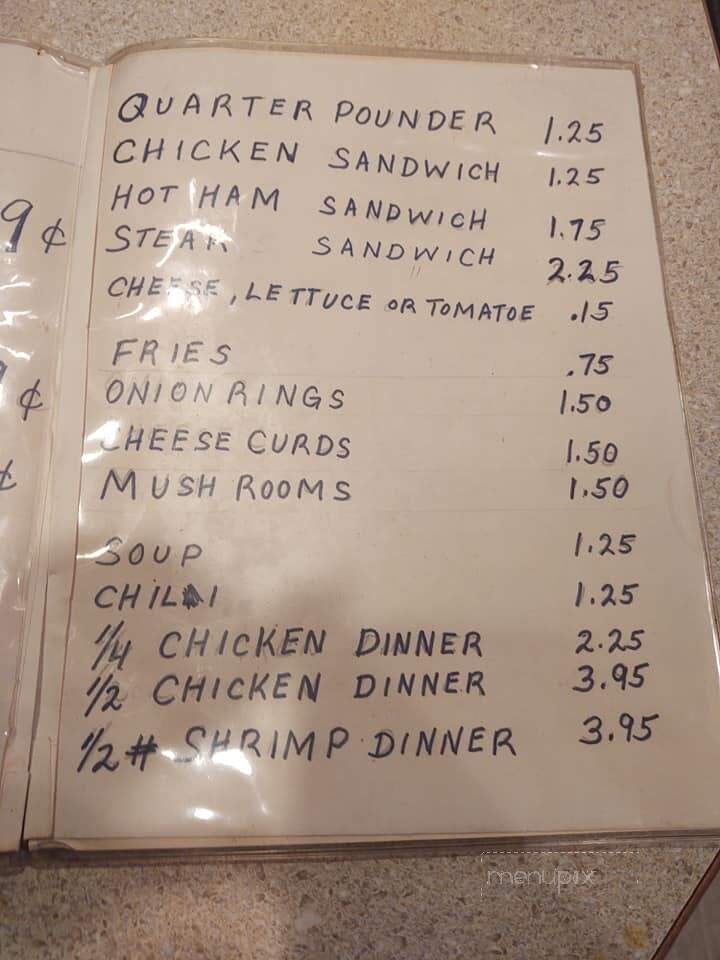 QUARTER POUNDER 1.25
CHICKEN SANDWICH 1.25
HOT HAM SANDWICH 1.75
STEAK SANDWICH 2.25
CHEESE, LETTUCE OR TOMATOE .15
FRIES .75
ONION RINGS 1.50
CHEESE CURDS 1.50
MUSHROOMS 1.50
SOUP 1.25
CHILI 1.25
1/4 CHICKEN DINNER 2.25
1/2 CHICKEN DINNER 3.95
1/2 # SHRIMP DINNER 3.95
9¢
¢
¢
menupix